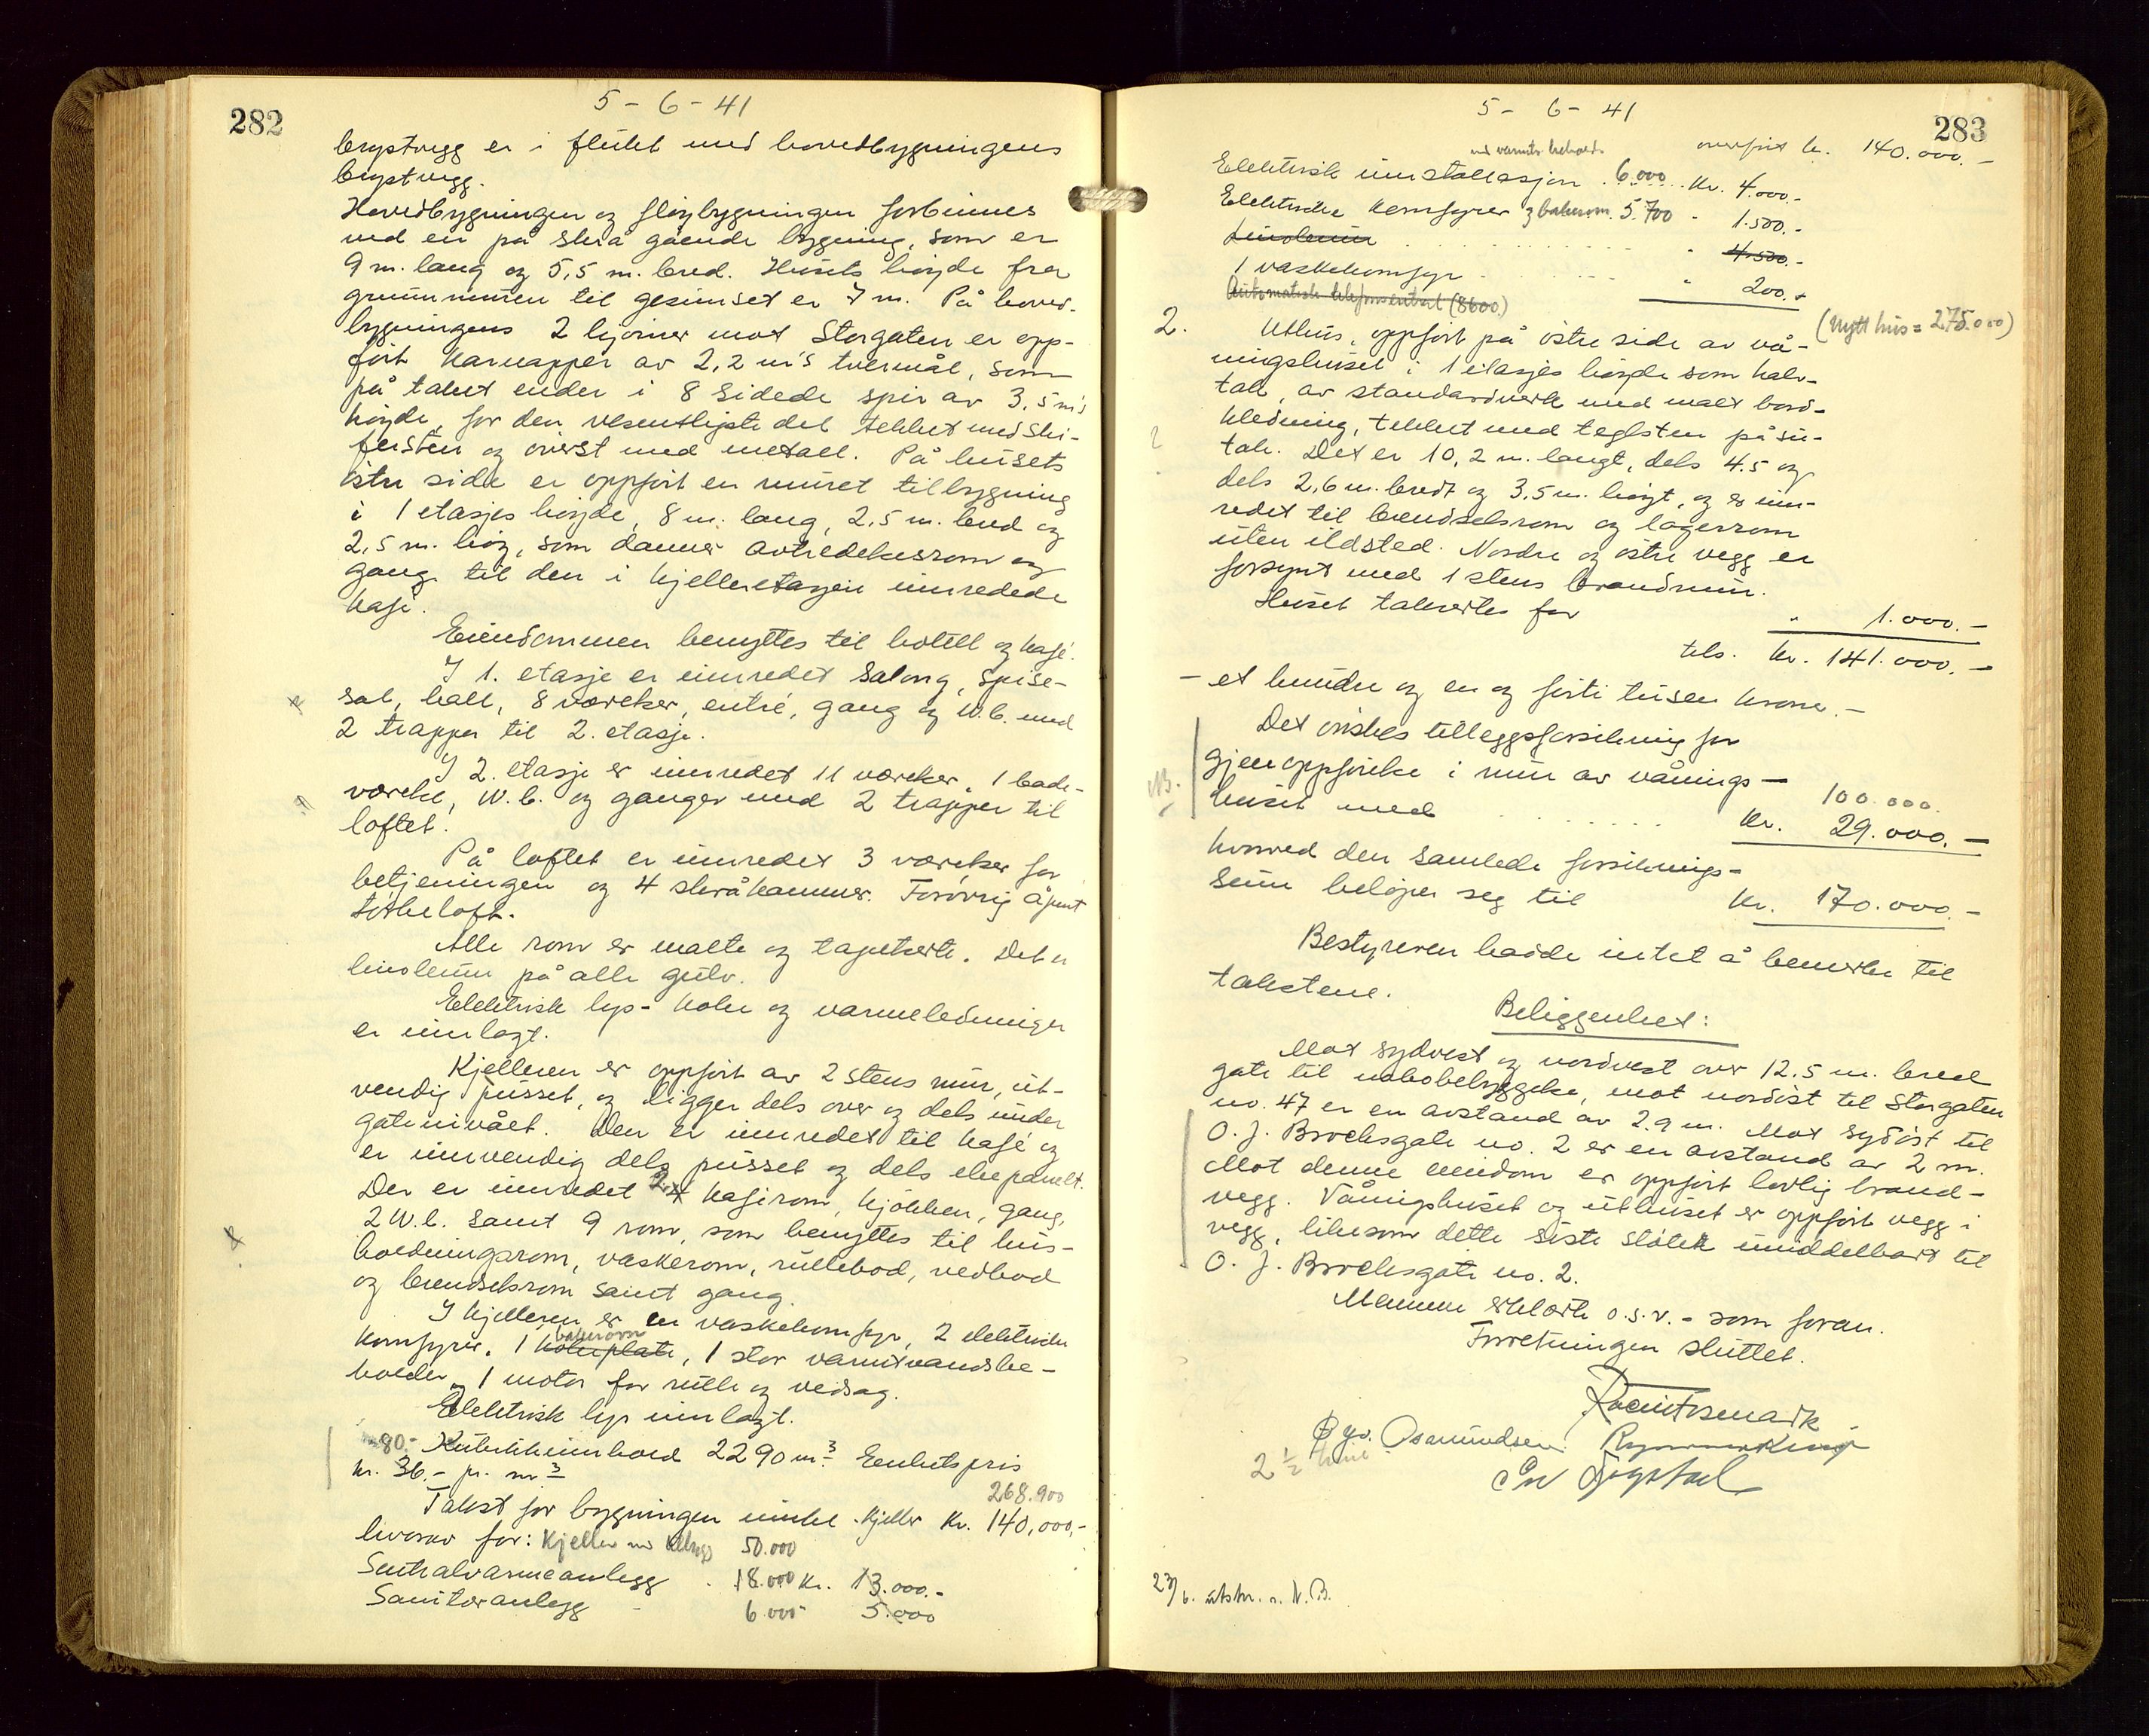 282
5 - 6 - 41
brystvegg er i flukt med hovedbygningens
brystvegg.
Hovedbygningen og fløybygningen forbinnes
ved en på skrå gående bygning, som er
9 m. lang og 5,5 m. bred. Husets høyde fra
grunnmuren til gesimset er 7 m. På hoved-
bygningens 2 hjørner mot Storgaten er opp-
ført karnapper av 2,2 m's tvermål, som
på taket ender i 8 sidede spir av 3,5 m's
høyde, for den vesentligste del tekket med ski-
fersten og øverst med metall. På husets
østre side er oppført en muret tilbygning
i 1 etasjes høyde, 8 m. lang, 2,5 m. bred og
2,5 m. høy, som danner avtredelsesrom og
gang til den i kjelleretasjen innredede
kafé.
Eiendommen benyttes til hotell og kafé.
I 1. etasje er innredet salong, spise-
sal, hall, 8 værelser, entré, gang og W.C. med
2 trapper til 2. etasje.
I 2. etasje er innredet 11 værelser, 1 bade-
værelse, W.C. og ganger med 2 trapper til
loftet.
På loftet er innredet 3 værelser for
betjeningen og 4 skråkammer. Forøvrig åpent
tørkeloft.
Alle rom er malte og tapetserte. Det er
linoleum på alle gulv.
Elektrisk lys- koke og varmeledninger
er innlagt.
Kjelleren er oppført av 2 stens mur, ut-
vendig pusset, og ligger dels over og dels under
gatenivået. Den er innredet til kafé og
er innvendig dels pusset og dels elepanelt.
Der er innredet 2 kaférom, kjøkken, gang,
2 W.C. samt 9 rom, som benyttes til hus-
holdningsrom, vaskerom, rullebod, vedbod
og brendselsrom samt gang.
I kjelleren er en vaskekomfyr, 2 elektriske
bakerovn
komfyrer, 1 kokeplate, 1 stor varmtvandsbe-
holder, 1 motor for rulle og vedsag.
Elektrisk lys innlagt.
80.- Kubikkinnhold 2290 m³. Enhetspris
kr. 36.- pr. m³
268.900
Takst for bygningen innkl. kjeller Kr. 140,000,-
hvorav for: Kjeller 50.000
Sentralvarmeanlegg . 18.000 Kr. 13.000.-
Sanitæranlegg - 6.000 5.000
283
5 - 6 - 41
overført kr. 140.000.-
Elektrisk innstallasjon . 6.000 .. Kr. 4.000.-
Elektriske komfyrer og bakerovn. 5.700 - 1.500.-
Linoleum - 4.500.-
1 vaskekomfyr - 200.-
Automatisk telefonsentral (8600)
(Nytt hus = 275.000)
2. Uthus, oppført på østre side av vå-
ningshuset i 1 etasjes høyde som halv-
tak, av standardverk med malt bord-
kledning, tekket med teglsten på su-
tak. Det er 10,2 m. langt, dels 4.5 og
dels 2,6 m. bredt og 3,5 m. høyt, og er inn-
redet til brendselsrom og lagerrom
uten ildsted. Nordre og østre vegg er
forsynt med 1 stens brandmur.
Huset takseres for " 1.000.-
tils. Kr. 141.000.-
- et hundre og en og førti tusen kroner.-
Det ønskes tilleggsforsikring for
NB. gjenoppførelse i mur av vånings-
100.000.
huset med . . . . . . Kr. 29.000.-
hvorved den samlede forsikrings-
sum beløper seg til Kr. 170.000.-
Bestyreren hadde intet å bemerke til
takstene.
Beliggenhet:
Mot sydvest og nordvest over 12.5 m. bred
gate til nabobebyggelse, mot nordøst til Storgaten
no. 47 er en avstand av 2.9 m. Mot sydøst til
O. J. Brochsgate no. 2 er en avstand av 2 m.
Mot denne eiendom er oppført lovlig brand-
vegg. Våningshuset og uthuset er oppført vegg i
vegg, likesom dette siste støter umiddelbart til
O. J. Brochsgate no. 2.
Mennene erklærte o.s.v. - som foran.
Forretningen sluttet.
Osmundsen
2 ½ time
23/6. utskr. s. N. B.